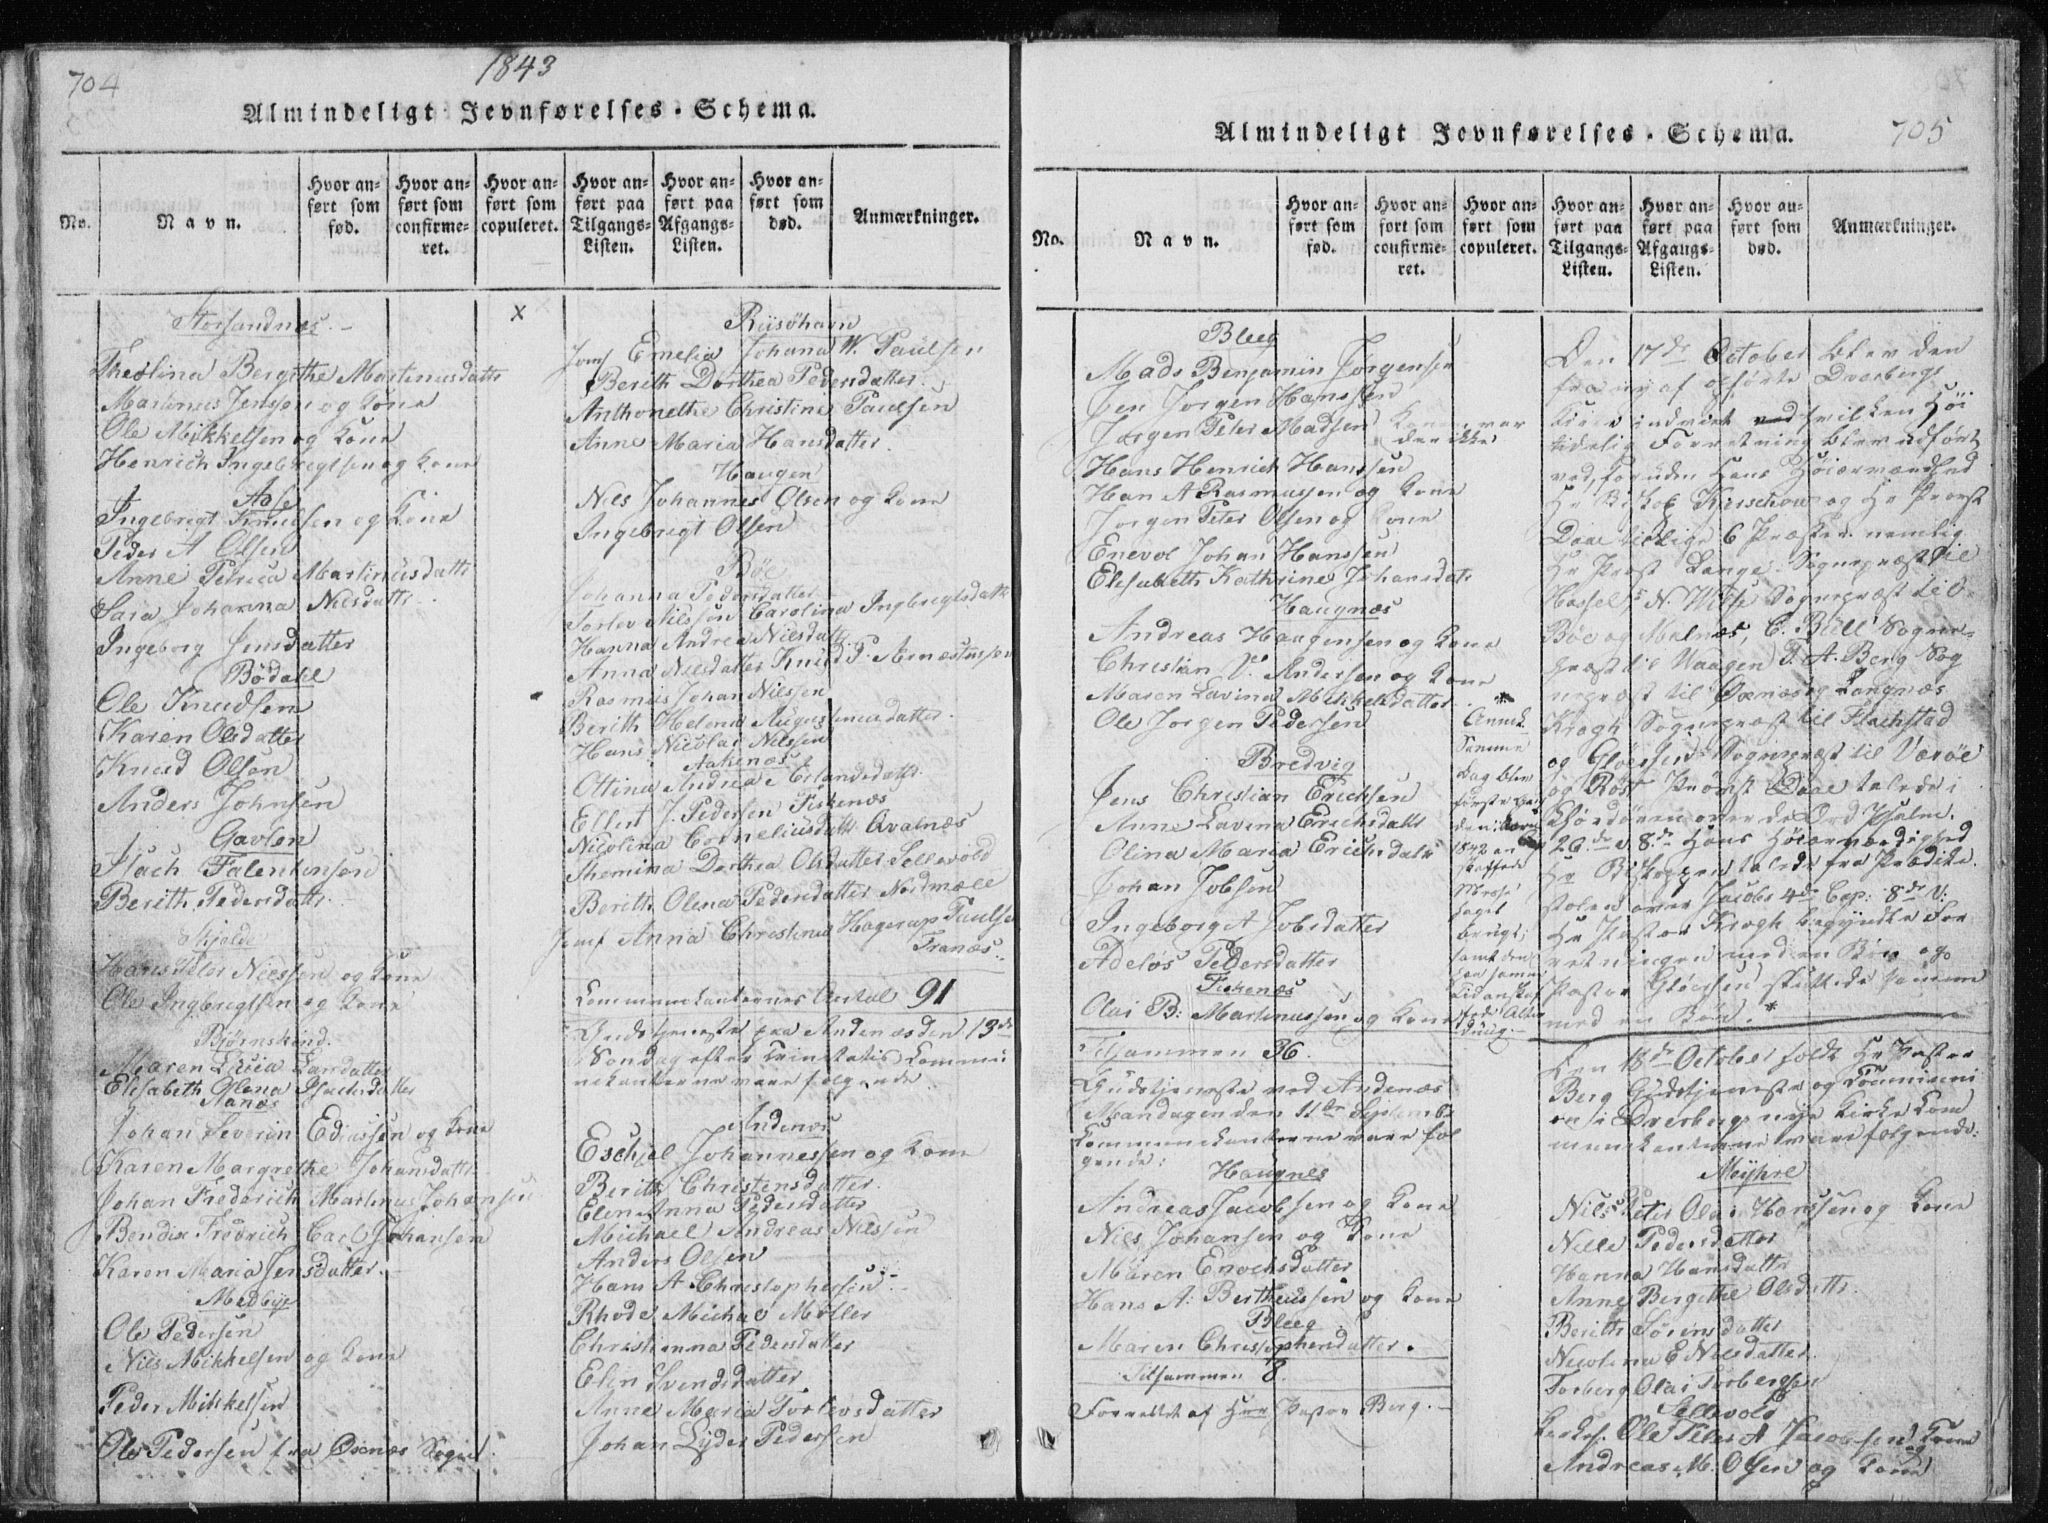 704
1843
Almindeligt Jevnførelses-Schema.
No.
Navn.
Hvor anført som fød.
Hvor anført som confirmeret.
Hvor anført som copuleret.
Hvor anført paa Tilgangs-Listen.
Hvor anført paa Afgangs-Listen.
Hvor anført som død.
Anmærkninger.
Storsandnæs.
Theolina Bergithe Martinusdattr
Martinus Jenssøn og Kone
Ole Mikkelsen og Kone
Henrich Ingebregtsen og Kone
Aase
Ingebrigt Knudsen og Kone
Peder A Olsen
Anne Petrica Martinusdattr
Sara Johanna Nielsdattr
Ingeborg Jensdatter
Bødahl
Ole Knudsen
Karen Olsdatter
Knud Olsen
Anders Johnsen
Gavlen
Isach Falentinsen
Berith Pedersdattr
Skjolde
Hans Peter Nielssen og Kone
Ole Ingbregtsen og Kone
Bjørnskind.
Maren Lucia Larsdatter
Elisabeth Olena Isachsdatter
Aanæs
Johan Severin Ediassen og Kone
Karen Margrethe Johansdattr
Johan Frederich Martinus Johansen
Bendix Fredrich Carl Johansen
Karen Maria Jensdatter.
Medbye
Ole Pedersen
Nils Mikkelsen og Kone
Peder Mikkelsen
Ole Pedersen fra Øxnæs Sogn
x
Riisøhavn
Jomf Emelia Johana W. Paulsen
Berith Dorthea Pedersdatter
Anthonethe Christine Paulsen
Anne Maria Hansdatter
Haugen
Nils Johannes Olsen og Kone
Ingebregt Olsen
Bøe
Johanna Pedersdatter
Torlev Nilssøn Carolina Ingbregtsdattr
Hanna Andrea Nilsdattr
Anna Nilsdatter Knud P. Arnestussen
Rasmus Johan Nilssen
Berith Helena Augustinusdatter
Hans Nicolai Nilssen
Aakenæs
Ottina Andrea Erlandsdattr
Ellert J. Pedersen Fiskenæs
Nicolina Corneliusdattr Qvalnæs
Themina Dorthea Olsdatter Sellevold
Berith Olena Pedersdatter Nordmæle
Jomf Anna Christina Hagerup Paulsen
Tranæs.
Communicanternes Antal 91
Gudstjeneste paa Andenæs den 13de
Søndag efter Trinitatis Communi
nikanterne vare følgende.
Andenæs
Eschjel Johannessen og Kone
Berith Christensdatter.
Elen Anna Pedersdatter
Michael Andreas Nilssen
Anders Olsen
Hans A Christophersen
Rhode Michal Møller
Christianna Pedersdatter
Elen Svendsdatter
Anne Maria Torlevsdatter
Johan Lyder Pedersen
Almindeligt Jevnførelses-Schema.
705
No.
Navn.
Hvor anført som fød.
Hvor anført som confirmeret.
Hvor anført som copuleret.
Hvor anført paa Tilgangs-Listen.
Hvor anført paa Afgangs-Listen.
Hvor anført som død.
Anmærkninger.
Bleeg
Mads Benjamin Jørgensen
Jen Jørgen Hanssen
Jørgen Peter Madsen Konen var
der ikke
Hans Henrich Hanssen
Han A Rasmussen og Kone
Jørgen Peter Olsen og Kone
Enevol Johan Hanssen
Elesabeth Kathrine Johansdatr
Haugnæs
Andreas Haagensen og Kone
Christian P. Andersen og Kone
Maren Lavina Mikkelsdatter
Ole Jørgen Pedersen
Bredvig
Jens Christian Erichsen
Anne Lavina Erichsdattr
Olina Maria Erichsdattr
Johan Jobsen
Ingeborg A Jobsdatter
Adeløs Pedersdatter
Fiskenæs
Olai B. Martinussen og Kone
Tilsammen 36.
Gudstjeneste ved Andenæs
Mandagen den 11te Septembr
Communikanterne vare føl
gende:
Haugnes
Andreas Jacobsen og Kone
Nils Johansen og Kone
Maren Enochsdatter
Hans A. Bertheussen og Kone
Bleeg
Maren Christophersdatter.
Tilsammen 8.
Forrettet af Herr Pastor Berg.
*
Anmk.
Samme
Dag blev
første Gang
1842
brugt;
samt den
Den 17de October blev den
fra ny af opførte Dverbergs
Kirke indviet ved hvilken Høi
tidelig Forretning blev udført
ved, foruden Hans Høiærværdighed
Hr Biskop Kierschow og Hr Provst
Daae tillige 6 Præster nemlig
Hr Provst Lange Sognepræst til
Hassel, N. Wilse Sognepræst til
Bøe og Malnæs, C. Bull Sogne-
præst til Vaagen, P. A. Berg Sog
nepræst til Øxnæs og Langnæs
Krogh Sognepræst til Flachstad
og Gløersen Sognepræst til Værøe
og Røst. Provst Daae talede i
Chordøren over de Ord Psalm.
26de v. 8de Hans Høiærværdighed
Hr Biskoppen talede fra Prædike
stolen over Jacobs 4de Cap: 8de V:
Hr Pastor Krogh begyndte For
retningen med en Bøn og
Pastor Gløersen sluttede samme
med en Bøn. *
Den 18de October holdt Hr Pastor
Berg Gudstjeneste og Communi
on i Dverbergs nye Kirke Com
munikanterne vare følgende:
Meyhre
Nils Peter Olai Hanssen og Kone
Nille Pedersdatter
Hanna Hansdattr
Anne Bergithe Olsdattr
Berith Sørensdatter
Nicolina E Nilsdatter
Torberg Olai Torbergsen
Sellevold
Ole Peter A Jacobsen og Kone
Andreas M. Olsen og Kone